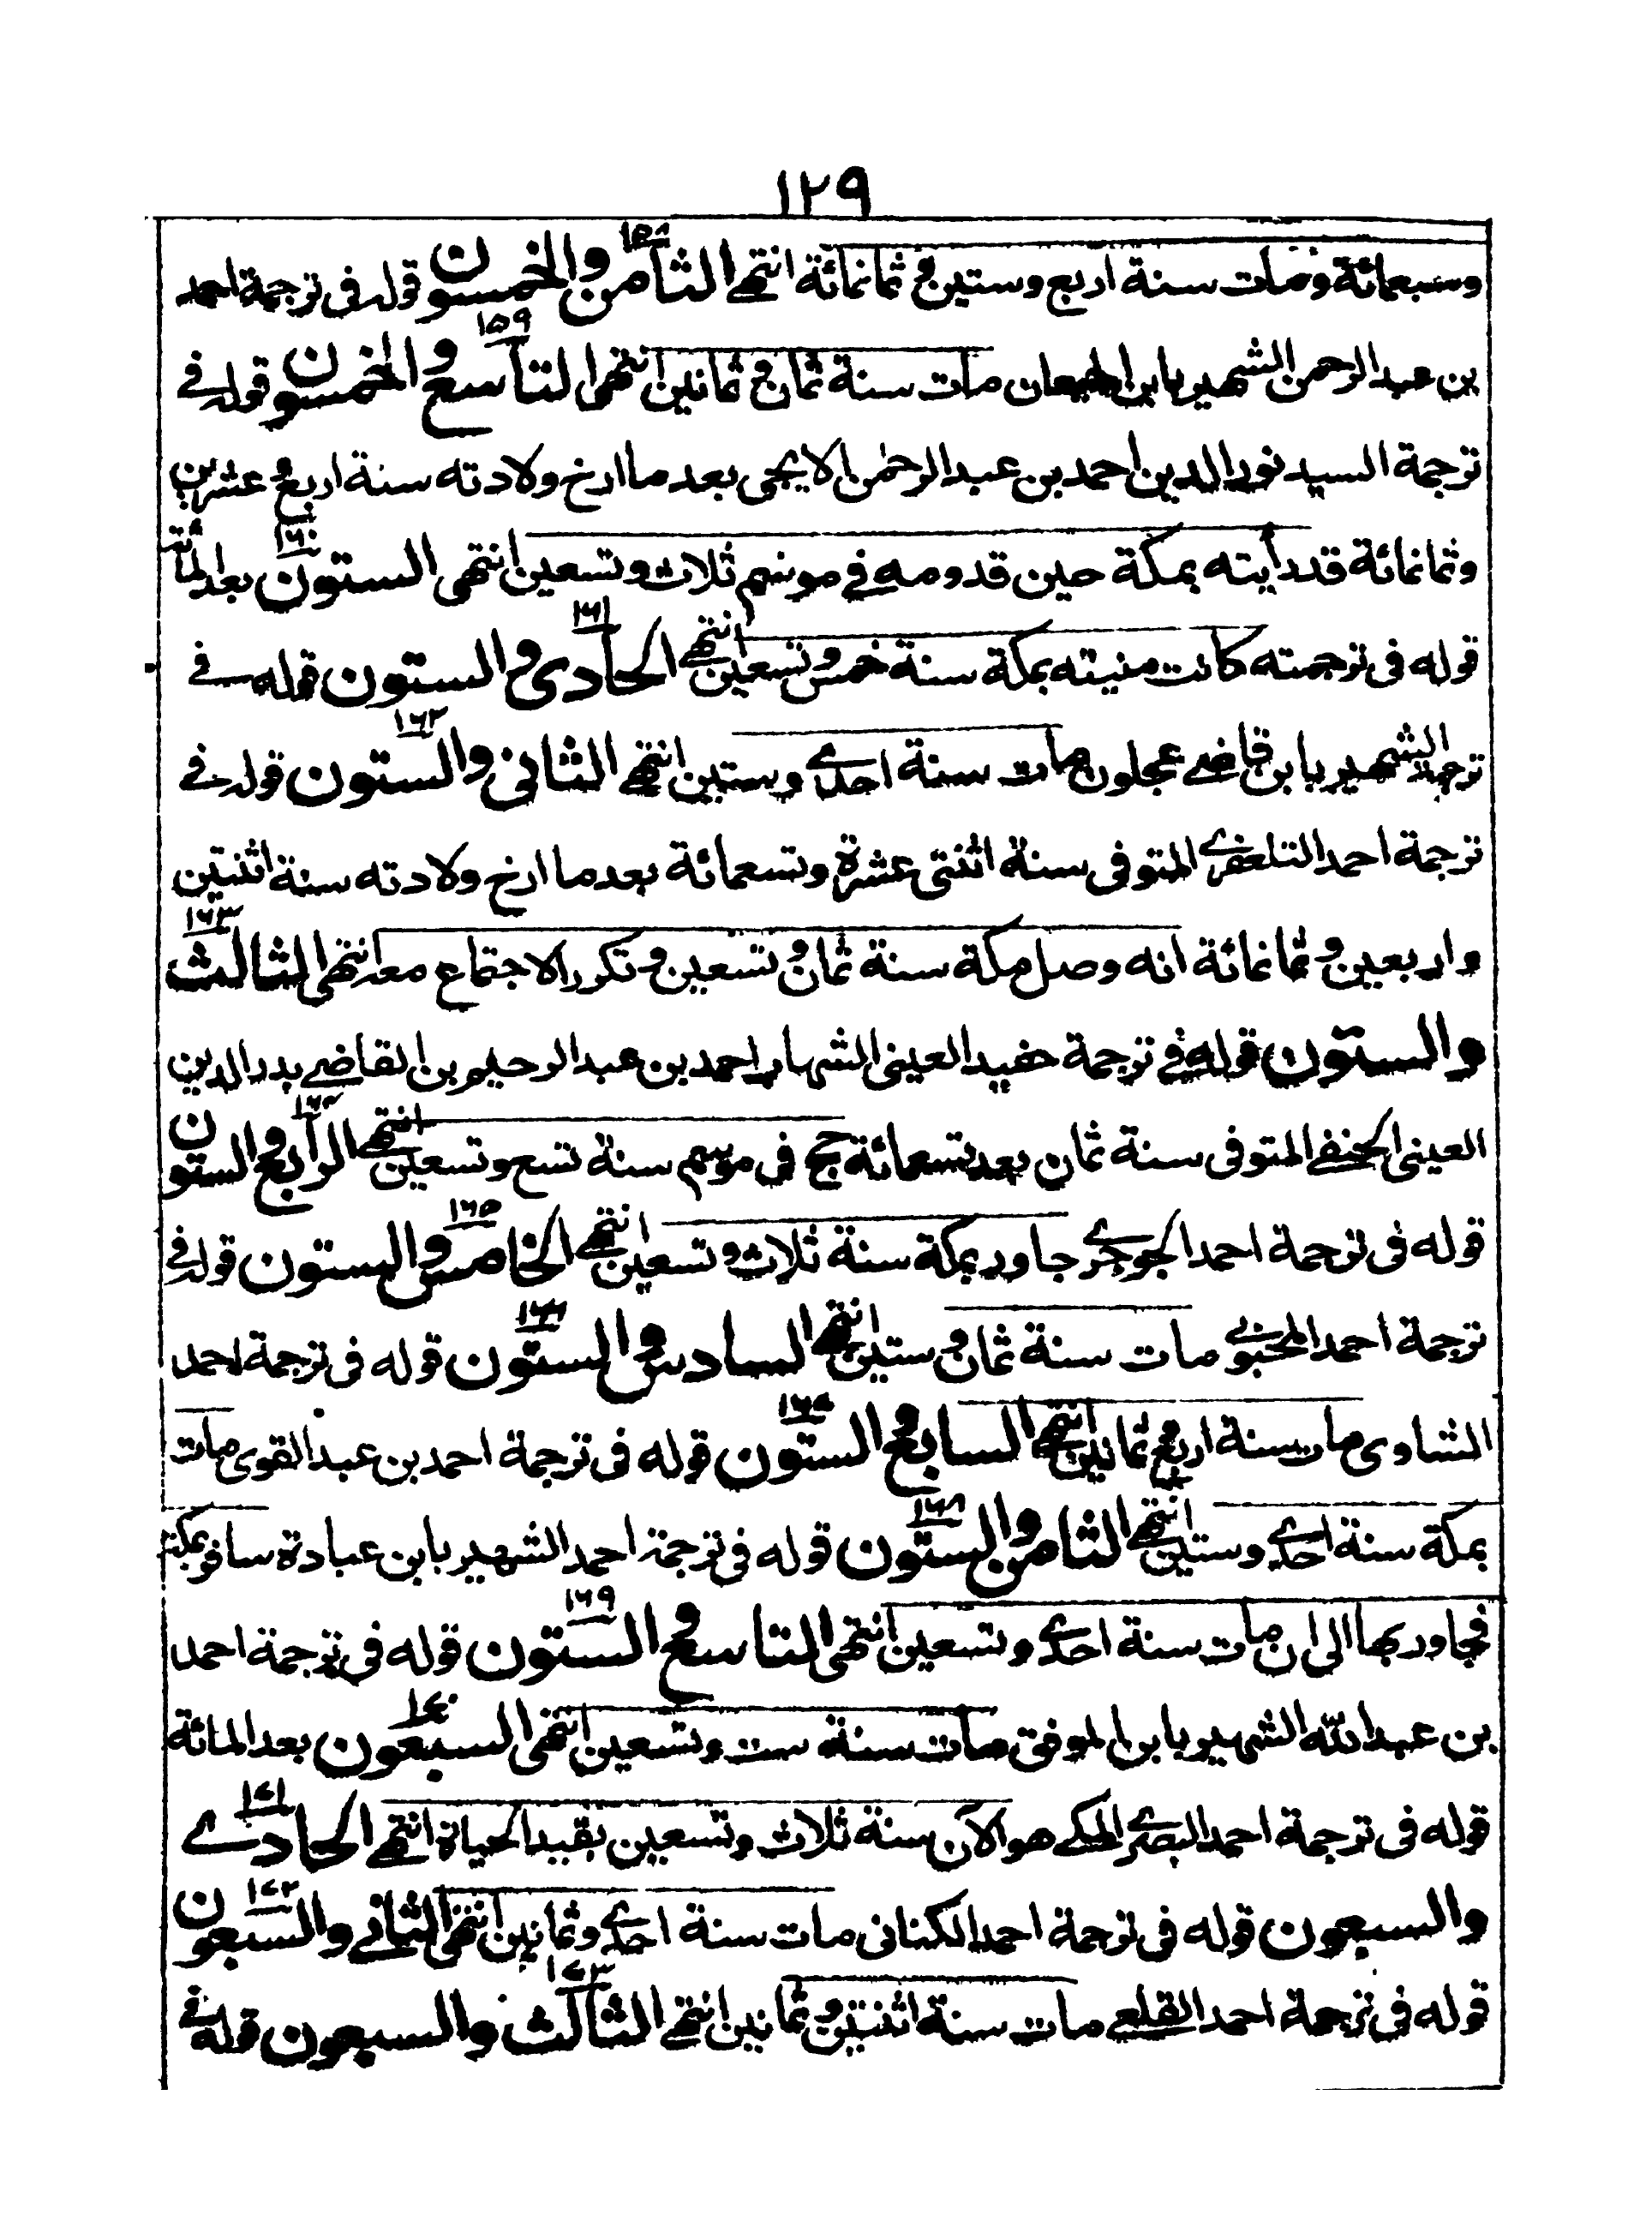 ١٢٩
وسبعمائة ومات سنة اربع وستين و ثمانمائة انتهى الثامن والخمسون ١٥٨ قوله فى ترجمة احمد
بن عبد الرحمن الشهير بابن الجيعان مات سنة ثمان و ثمانين انتهى التاسع والخمسون ١٥٩ قوله فى
ترجمة السيد نور الدين احمد بن عبد الرحمٰن الايجى بعد ما ارخ ولادته سنة اربع و عشرين
وثمانمائة قد رأيته بمكة حين قدومه فى موسم ثلاث وتسعين انتهى الستون ١٦٠ بعد المائة
قوله فى ترجمته كانت منيته بمكة سنة خمس و تسعين انتهى الحادى و الستون ١٦١ قوله فى
ترجمة الشهير بابن قاضے عجلون مات سنة احدے وستين انتهى الثانى والستون ١٦٢ قوله فى
ترجمة احمد التلعفرے المتوفى سنة اثنتى عشرة وتسعمائة بعد ما ارخ ولادته سنة اثنتين
واربعين و ثمانمائة انه وصل مكة سنة ثمان و تسعين و تكرر الاجتماع معه انتهى الثالث ١٦٣
والستون قوله فى ترجمة حفيد العينى الشهاب احمد بن عبد الرحيم بن القاضے بدر الدين
العينى الحنفے المتوفى سنة ثمان بعد تسعمائة حج فى موسم سنة تسع وتسعين انتهى الرابع والستون ١٦٤
قوله فى ترجمة احمد الجوجرے جاور بمكة سنة ثلاث و تسعين انتهى الخامس و الستون ١٦٥ قوله فى
ترجمة احمد مات سنة ثمان و ستين انتهى السادس و الستون ١٦٦ قوله فى ترجمة احمد
الشاوى مات سنة اربع و ثمانين انتهى السابع و الستون ١٦٧ قوله فى ترجمة احمد بن عبد القوى مات
بمكة سنة احدے وستين انتهى الثامن و الستون ١٦٨ قوله فى ترجمة احمد الشهير بابن عبادة سافر بمكة
فجاور بها الى ان مات سنة احدے وتسعين انتهى التاسع و الستون ١٦٩ قوله فى ترجمة احمد
بن عبد اللّه الشهير بابن الموفق مات سنة ست وتسعين انتهى السبعون ١٧٠ بعد المائة
قوله فى ترجمة احمد البصرے المكے هو الآن سنة ثلاث وتسعين بقيد الحياة انتهى الحادے ١٧١
والسبعون قوله فى ترجمة احمد الكنانى مات سنة احدے وثمانين انتهى الثانے والسبعون ١٧٢
قوله فى ترجمة احمد القلعے مات سنة اثنتين و ثمانين انتهى الثالث والسبعون ١٧٣ قوله فى